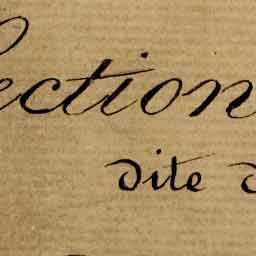 ection
dite d